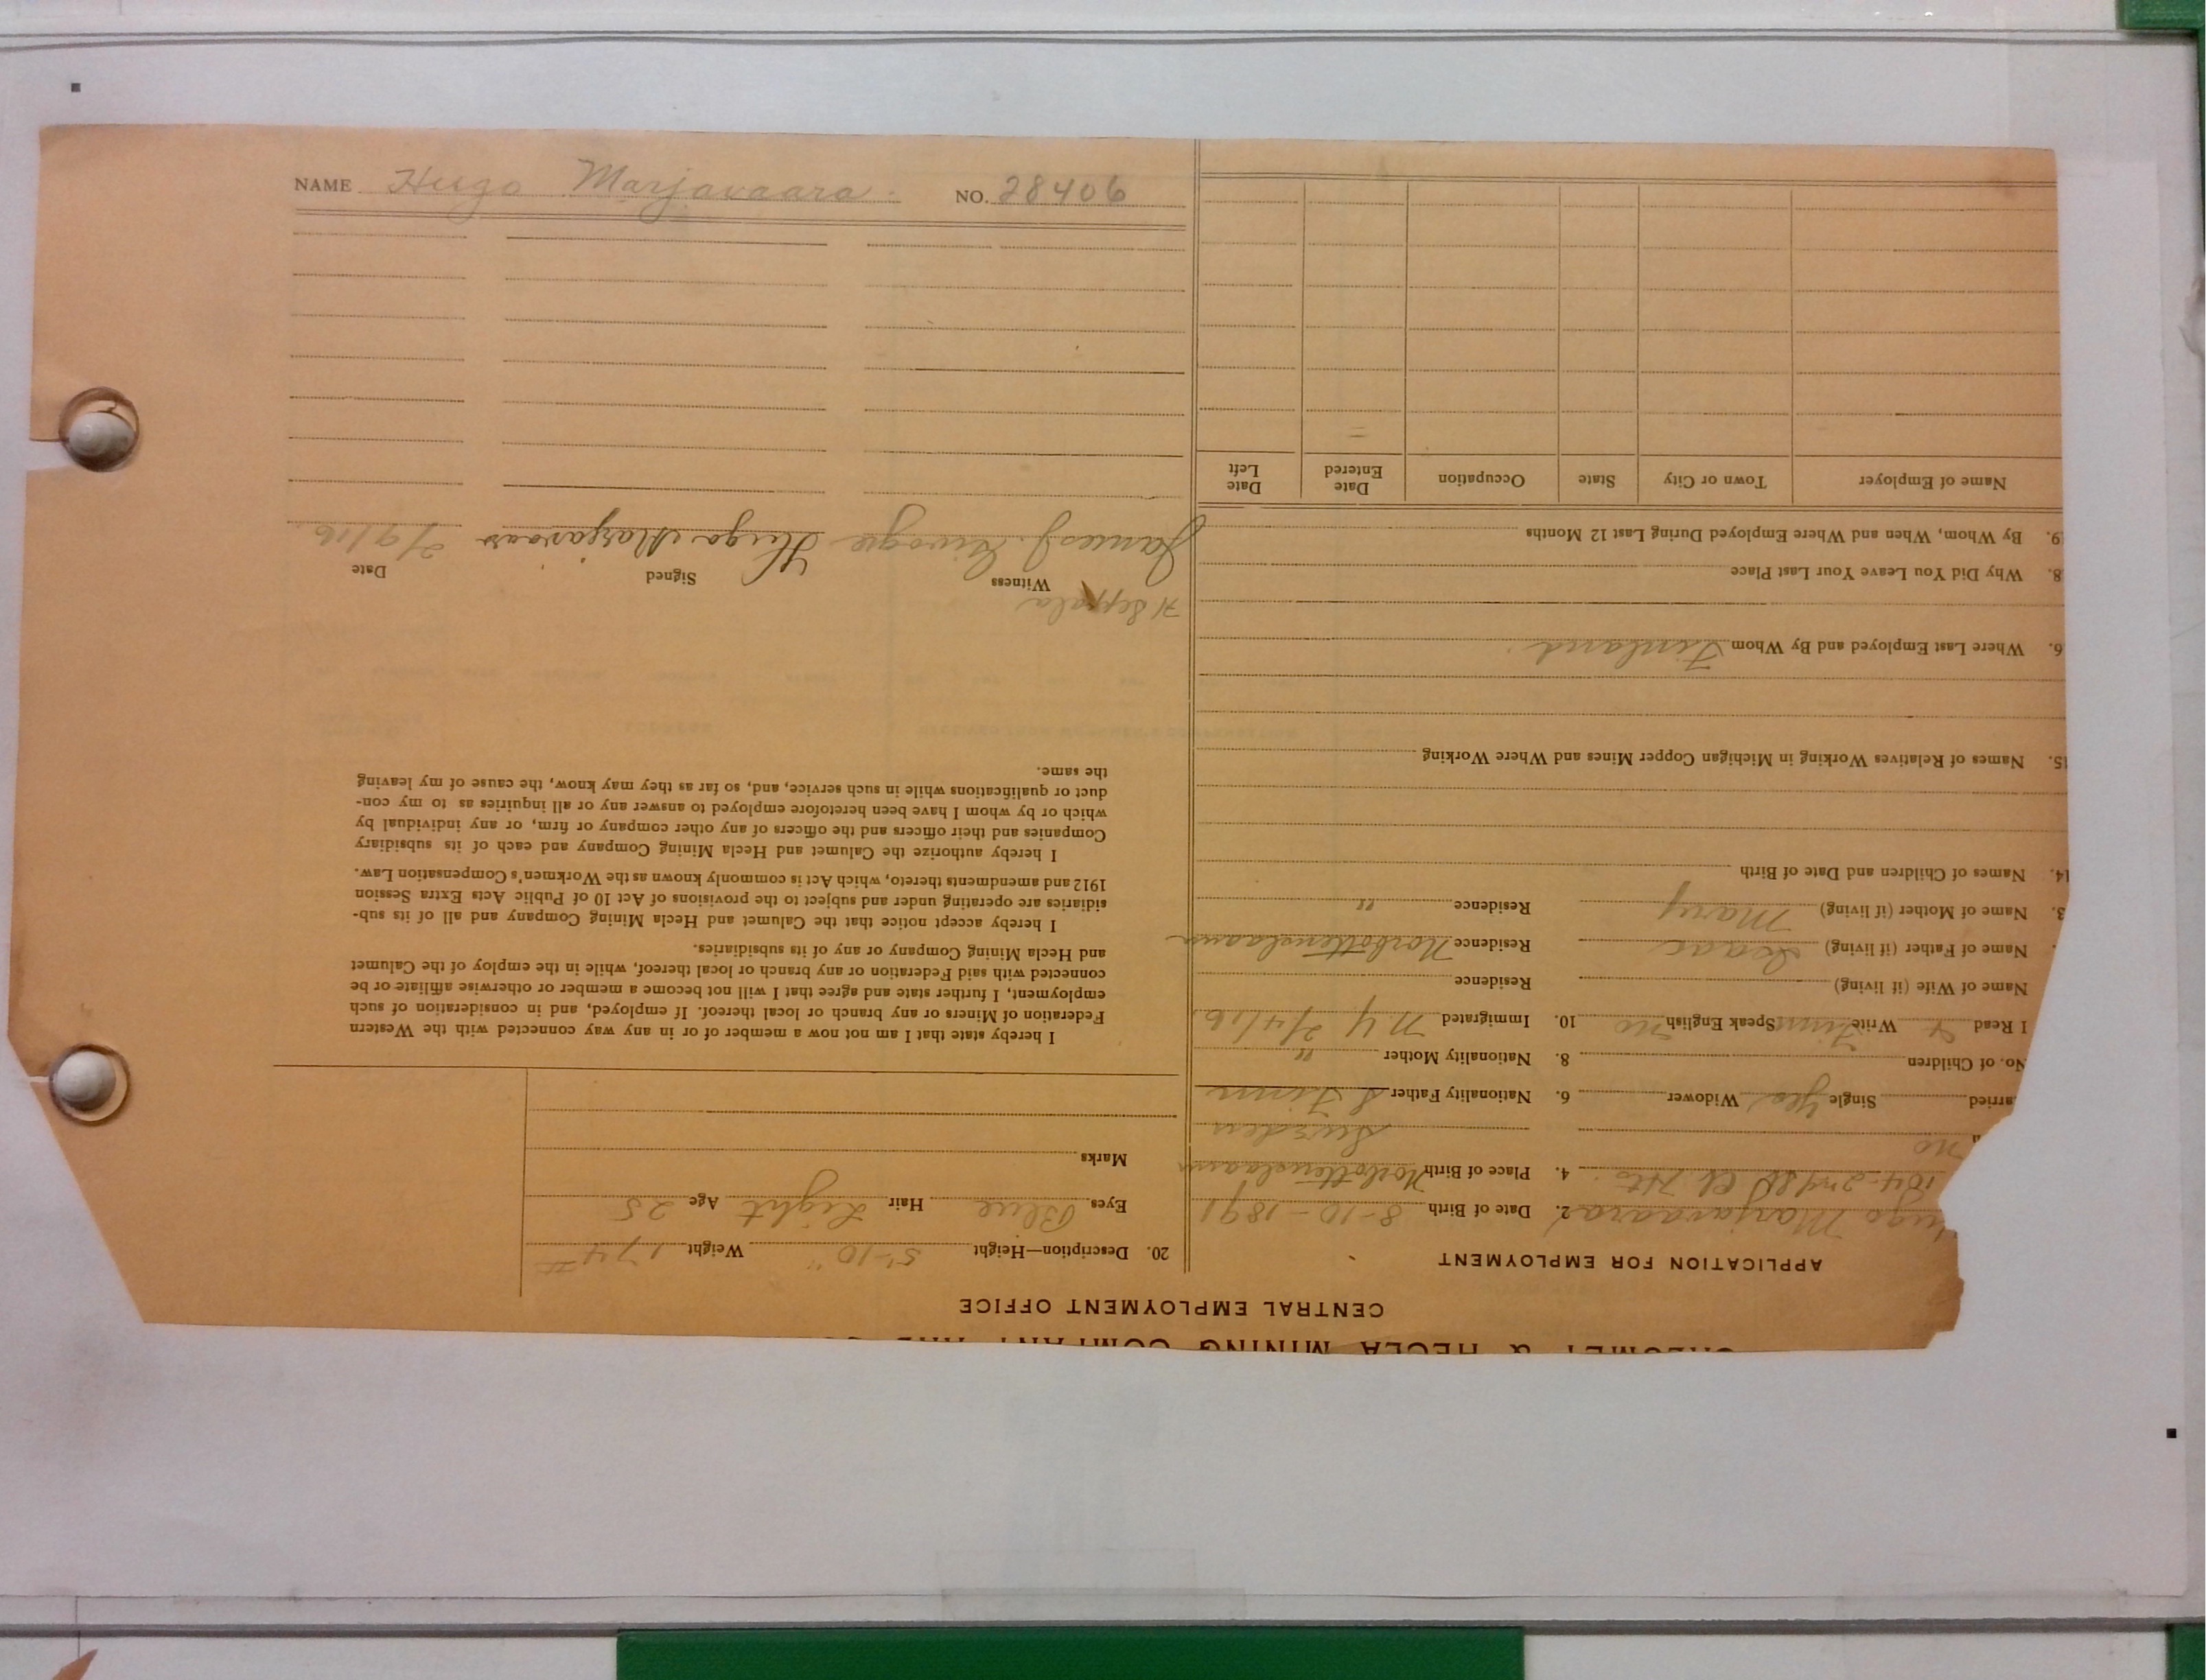 NAME Hugo Marjavaara. NO. 28406
CALUMET & HECLA MINING COMPANY AND
CENTRAL EMPLOYMENT OFFICE
APPLICATION FOR EMPLOYMENT
Hugo Marjavaara 2. Date of Birth 8-10-1891
104-2nd St 4. Place of Birth Norbottenslaan
no Sweden
arried Single Yes Widower 6. Nationality Father S. Finn
No. of Children 8. Nationality Mother "
I Read & Write Finn Speak English no 10. Immigrated N Y 2/4/16
Name of Wife (if living) Residence
Name of Father (if living) Isaac Residence Norbottenslaan
3. Name of Mother (if living) Mary Residence "
14. Names of Children and Date of Birth
15. Names of Relatives Working in Michigan Copper Mines and Where Working
6. Where Last Employed and By Whom Finland.
8. Why Did You Leave Your Last Place
19. By Whom, When and Where Employed During Last 12 Months
Name of Employer Town or City State Occupation Date Entered Date Left
20. Description—Height 5'-10" Weight 174#
Eyes Blue Hair Light Age 25
Marks
I hereby state that I am not now a member of or in any way connected with the Western
Federation of Miners or any branch or local thereof. If employed, and in consideration of such
employment, I further state and agree that I will not become a member or otherwise affiliate or be
connected with said Federation or any branch or local thereof, while in the employ of the Calumet
and Hecla Mining Company or any of its subsidiaries.
I hereby accept notice that the Calumet and Hecla Mining Company and all of its sub-
sidiaries are operating under and subject to the provisions of Act 10 of Public Acts Extra Session
1912 and amendments thereto, which Act is commonly known as the Workmen's Compensation Law.
I hereby authorize the Calumet and Hecla Mining Company and each of its subsidiary
Companies and their officers and the officers of any other company or firm, or any individual by
which or by whom I have been heretofore employed to answer any or all inquiries as to my con-
duct or qualifications while in such service, and, so far as they may know, the cause of my leaving
the same.
H Seppala
Witness Signed Date
James J. Hugo Marjavaara 2/9/16